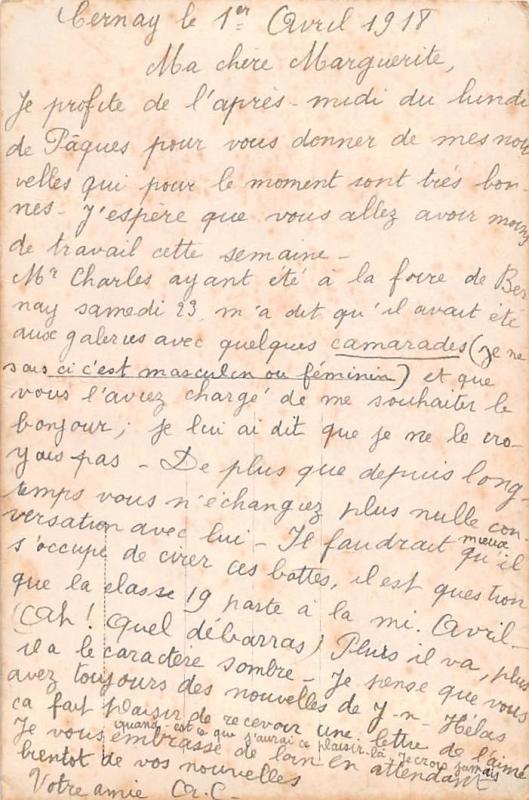 Cernay le 1er Avril 1918
Ma chère Marguerite,
Je profite de l'après-midi du lundi
de Pâques pour vous donner de mes nou
velles qui pour le moment sont trés bon
nes - J'espère que vous allez avoir moins
de travail cette semaine -
Mr Charles ayant été à la foire de Ber
nay samedi 23, m'a dit qu'il avait été
aux galeries avec quelques camarades (je ne
sais ci c'est masculin ou féminin) et que
vous l'aviez chargé de me souhaiter le
bonjour; je lui ai dit que je ne le cro-
yais pas - De plus que depuis long
temps vous n'échangiez plus nulle con-
versation avec lui - Il faudrait mieux qu'il
s'occupe de cirer ces bottes, il est question
que la classe 19 parte à la mi-Avril -
(Ah! Quel débarras) Plus il va, plus
il a le caractère sombre - Je pense que vous
avez toujours des nouvelles de J-n - Hélas
ca fait plaisir de recevoir une lettre de l'aimé
quand est ce que j'aurai ce plaisir-là, je crois jamais
Je vous embrasse de loin en attendant
bientot de vos nouvelles
Votre amie A.C-